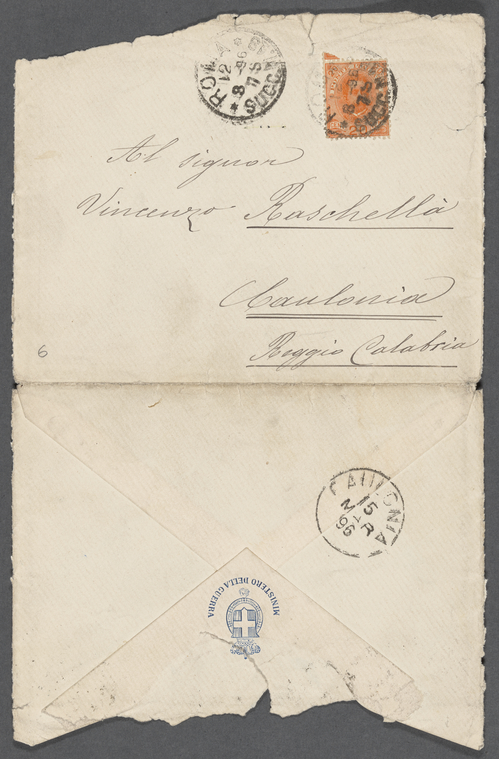 ROMA
12
8 - 96
7 S
SUCC.
Al signor
Vincenzo Raschellà
Caulonia
Reggio Calabria
6
CAULONIA
15
MAR
96
MINISTERO DELLA GUERRA